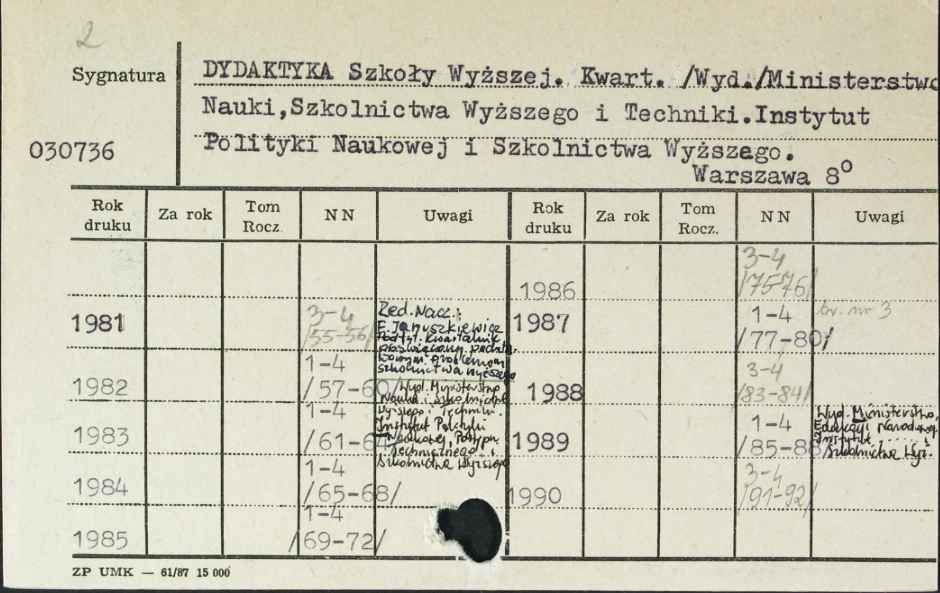 2
Sygnatura
030736
DYDAKTYKA Szkoły Wyższej. Kwart. /Wyd./Ministerstwo
Nauki,Szkolnictwa Wyższego i Techniki.Instytut
Polityki Naukowej i Szkolnictwa Wyższego.
Warszawa 8º
Rok druku Za rok Tom Rocz. N N Uwagi Rok druku Za rok Tom Rocz. N N Uwagi
1986 3-4 /75-76/
1981 3-4 /55-56/ Red. Nacz.:
E. Januszkiewicz
Podtyt. Kwartalnik
poświęcony podsta-
wowym problemom
szkolnictwa wyższego
1987 1-4 /77-80/ br. nr 3
1982 1-4 /57-60/ Wyd. Ministerstwo
Nauki i Szkolnictwa
Wyższego i Techniki.
Instytut Polityki
Naukowej, Postępu
Technicznego i
Szkolnictwa Wyższego
1988 3-4 /83-84/
1983 1-4 /61-64/
1989 1-4 /85-88/ Wyd. Ministerstwo
Edukacji Narodowej
Instytut
Szkolnictwa Wyż.
1984 1-4 /65-68/
1990 3-4 /91-92/
1985 1-4 /69-72/
ZP UMK — 61/87 15 000